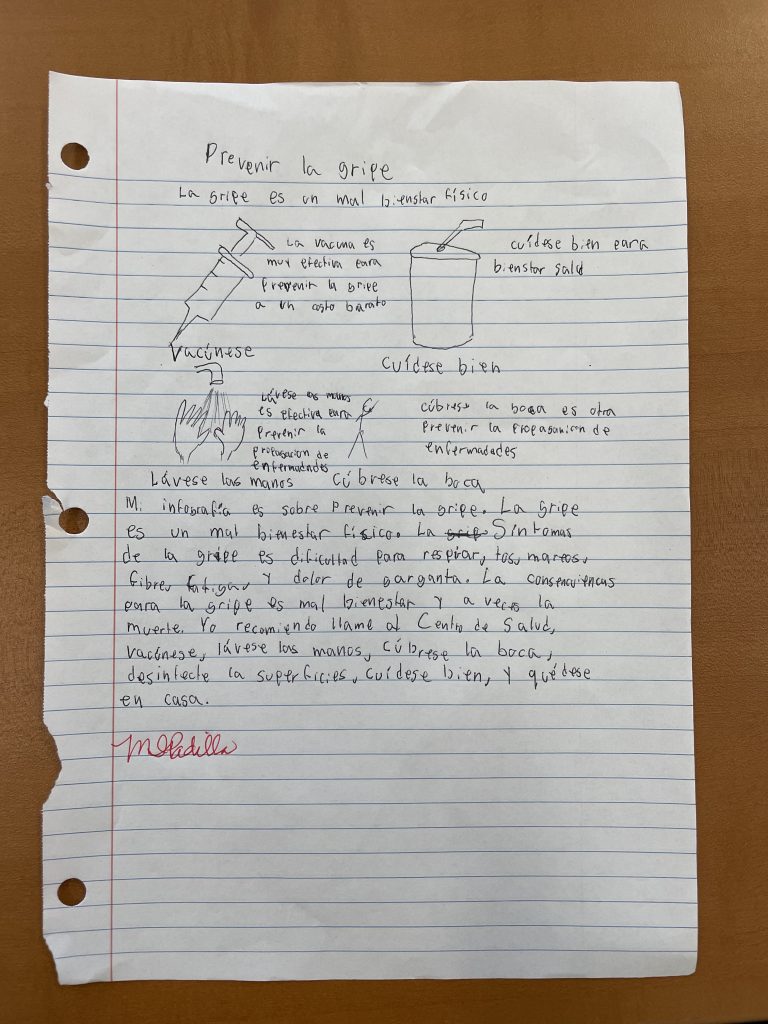 Prevenir la gripe
La gripe es un mal bienstar físico
La vacuna es
muy efectiva para
prevenir la gripe
a un costo barato
Vacúnese
cuídese bien para
bienstar salud
Cuídese bien
Lávese las manos
es efectiva para
prevenir la
propagación de
enfermedades
Lávese las manos
cúbrese la boca es otra
prevenir la propagación de
enfermedades
Cúbrese la boca
Mi infografía es sobre prevenir la gripe. La gripe
es un mal bienestar físico. La Síntomas
de la gripe es dificultad para respirar, tos, mareos,
fibre, fatiga, y dolor de garganta. La consecuencias
para la gripe es mal bienestar y a veces la
muerte. Yo recomiendo llame al Centro de Salud,
vacúnese, lávese las manos, cúbrese la boca,
desinfecte la superficies, cuídese bien, y quédese
en casa.
Padilla